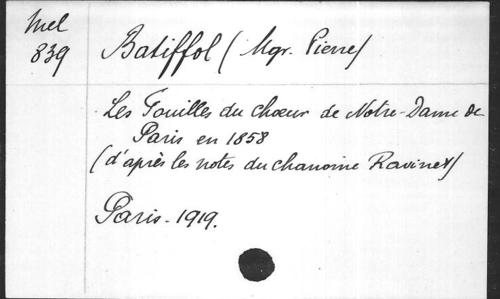 Mel
839
Batiffol (Mgr. Pierre)
Les Fouilles du chœur de Notre-Dame de
Paris en 1858
(d'après les notes du chanoine Ravinet)
Paris - 1919.